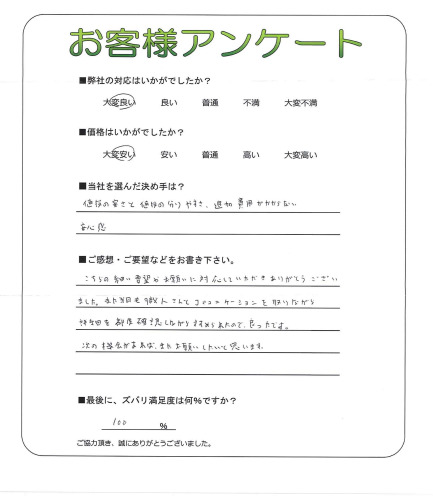 お客様アンケート
■弊社の対応はいかがでしたか？
大変良い 良い 普通 不満 大変不満
■価格はいかがでしたか？
大変安い 安い 普通 高い 大変高い
■当社を選んだ決め手は？
値段の安さと値段の分りやすさ、追加費用がかからない
安心感
■ご感想・ご要望などをお書き下さい。
こちらの細い要望やお願いに対応していただきありがとうござい
ました。また当日も職人さんとコミュニケーションを取りながら
を都度確認しながらすすめられたので、良かったです。
次の機会があれば、またお願いしたいと思います。
■最後に、ズバリ満足度は何%ですか？
100 %
ご協力頂き、誠にありがとうございました。